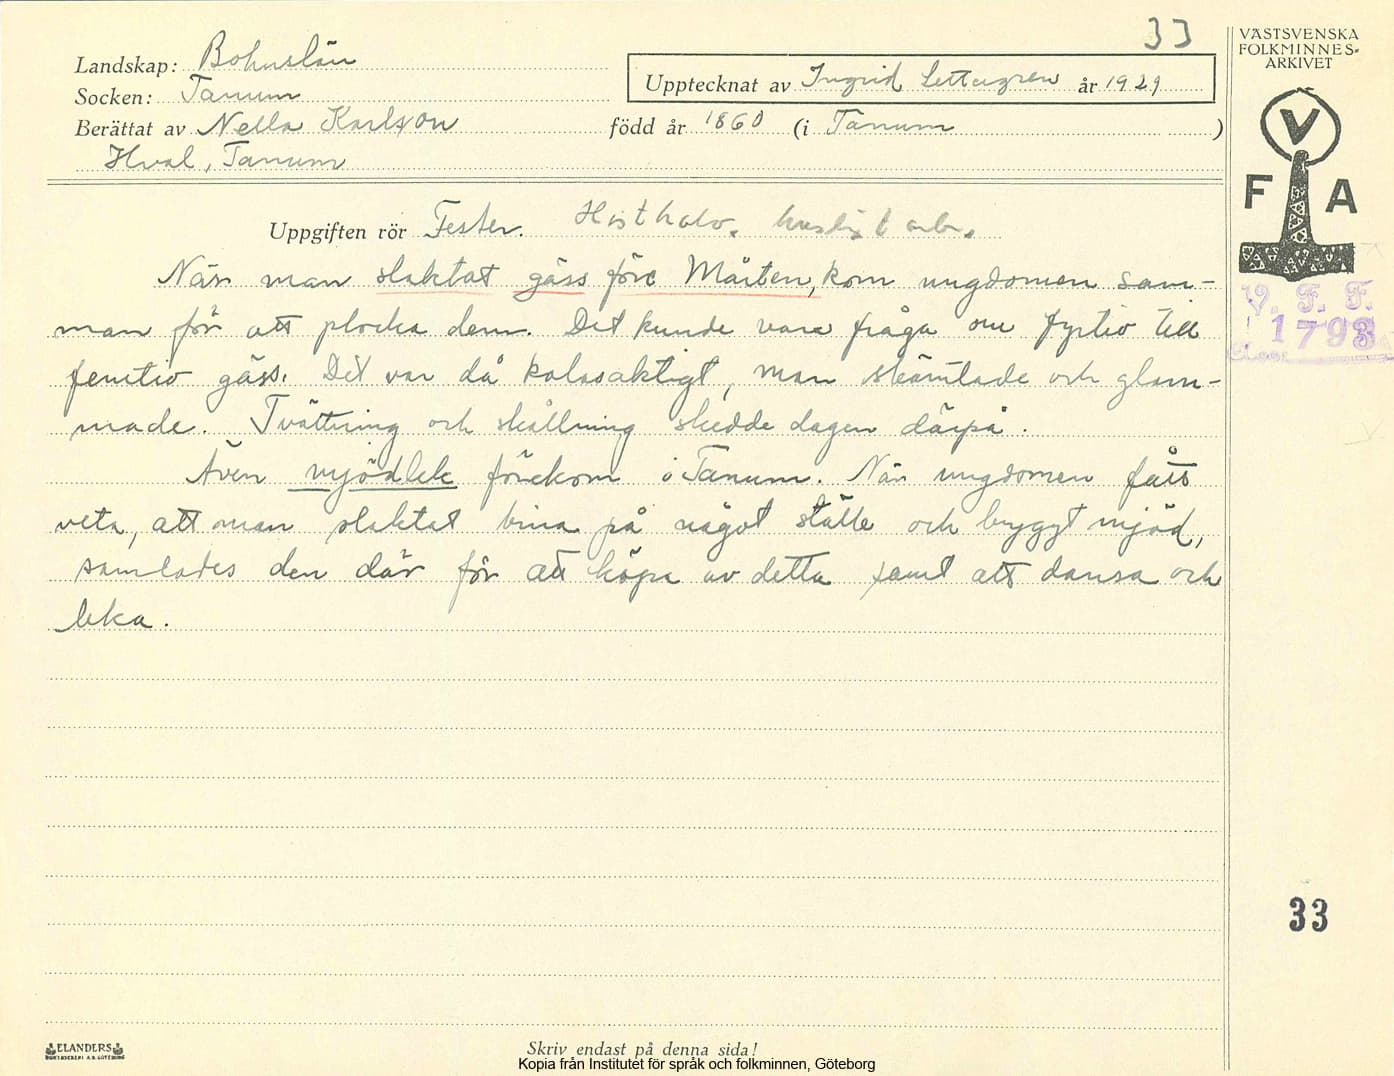 33
Landskap: Bohuslän
Socken: Tanum
Upptecknat av Ingrid år 1929
Berättat av Nella Karlson född år 1860 (i Tanum )
Hval, Tanum
VÄSTSVENSKA
FOLKMINNES-
ARKIVET
V
F A
V. F. F.
1793
Uppgiften rör Fester. Hösthalv. husligt arb.
När man slaktat gäss före Mårten, kom ungdomen sam-
man för att plocka dem. Det kunde vara fråga om fyrtio till
femtio gäss. Det var då kalasaktigt, man skämtade och glam-
made. Tvättning och skållning skedde dagen därpå.
Även mjödlek förekom i Tanum. När ungdomen fått
veta, att man slaktat bina på något ställe och bryggt mjöd,
samlades den där för att köpa av detta samt att dansa och
leka.
33
ELANDERS
BOKTRYCKERI A.B. GÖTEBORG
Skriv endast på denna sida!
Kopia från Institutet för språk och folkminnen, Göteborg